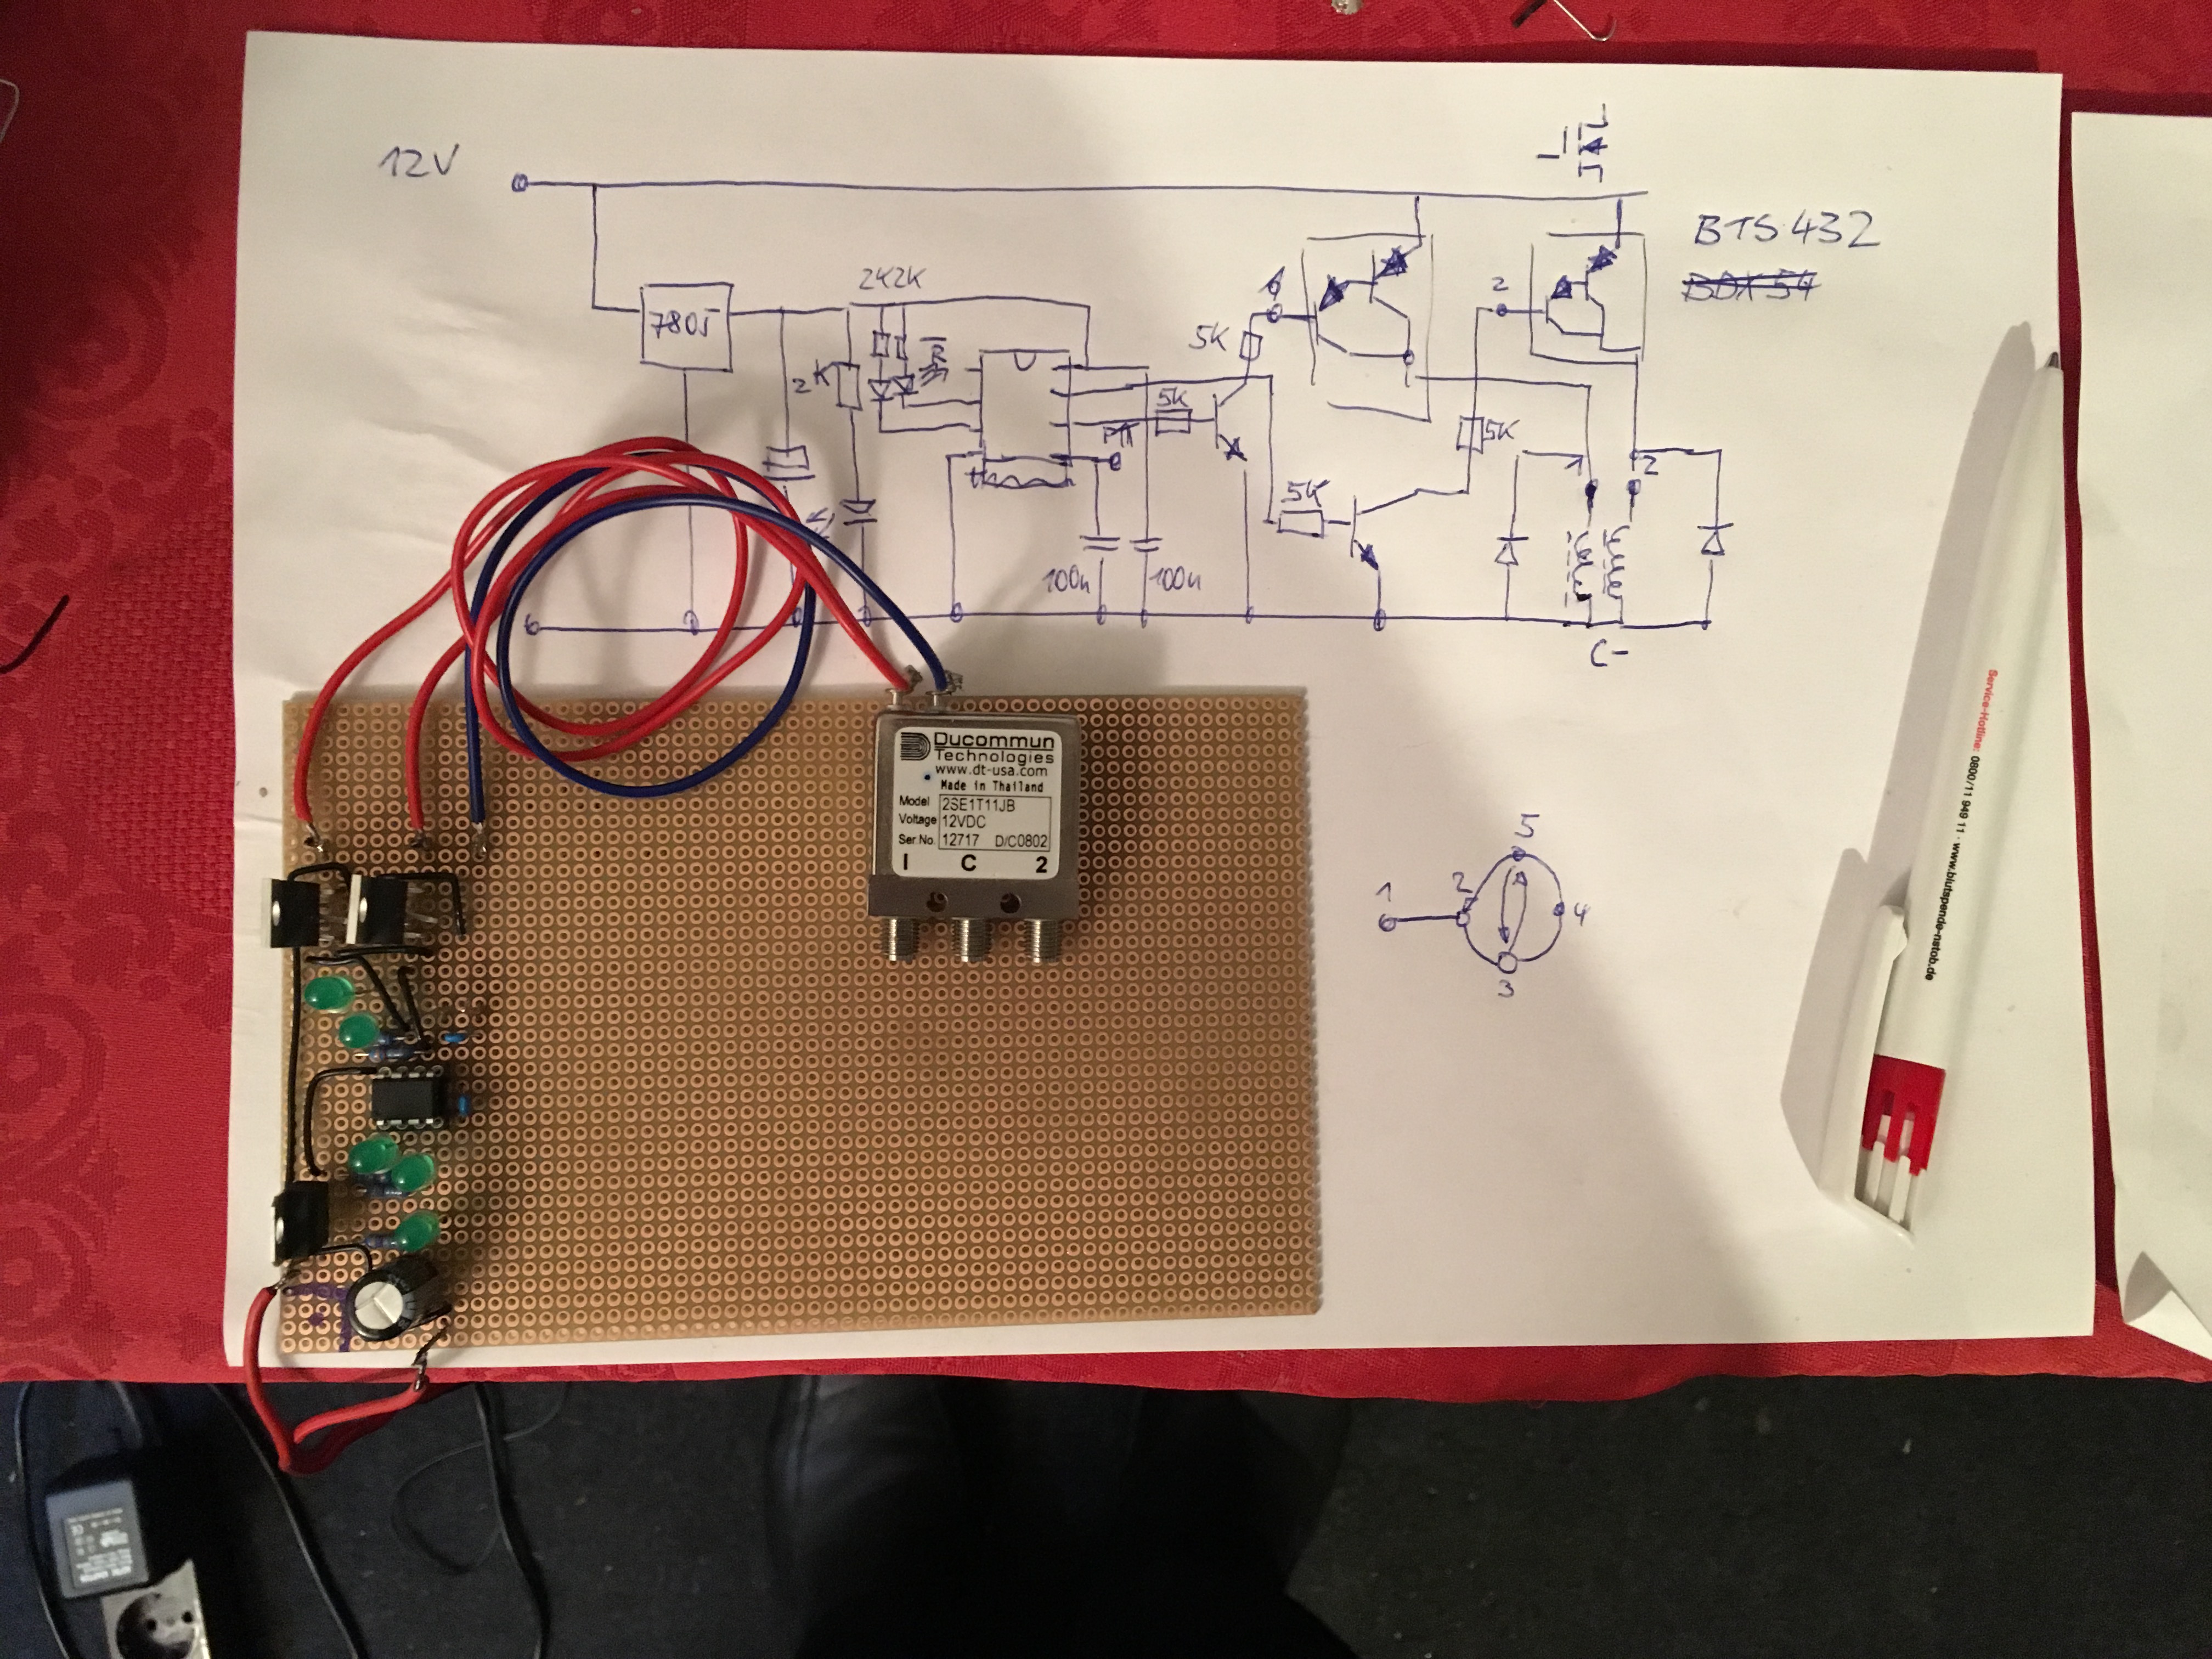 12V
BTS 432
BDX 54
2K2K
7805
2K
5K
1
2
5K
5K
5K
PTT
1
2
100n
100n
C-
5
1
2
4
3
Ducommun
Technologies
www.dt-usa.com
Made in Thailand
Model 2SE1T11JB
Voltage 12VDC
Ser.No. 12717 D/C0802
1 C 2
Service-Hotline: 0800/11 949 11 · www.blutspende-nstob.de